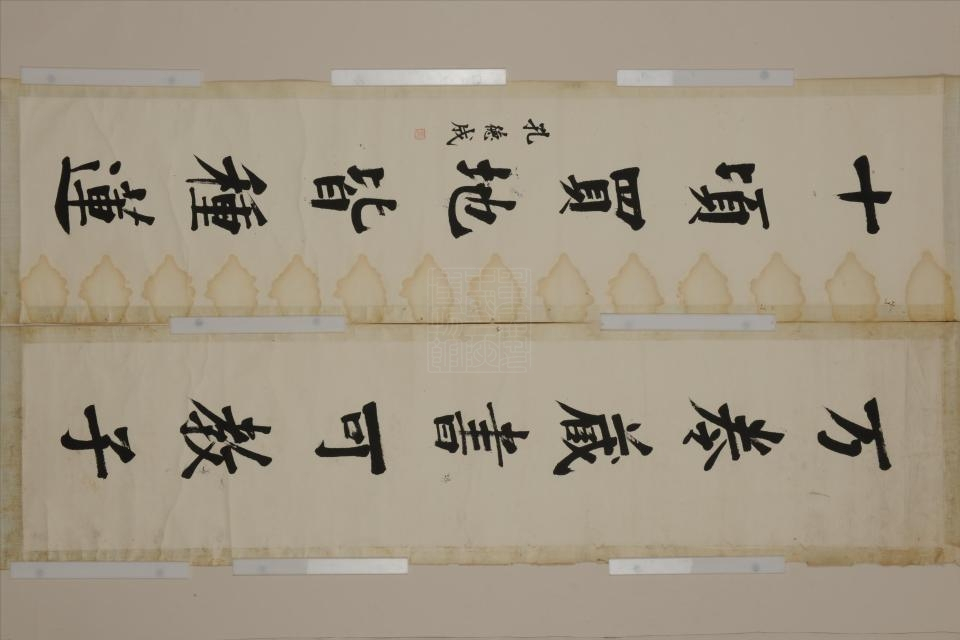 万卷藏書可教子
十頃買地皆種蓮
孔德成